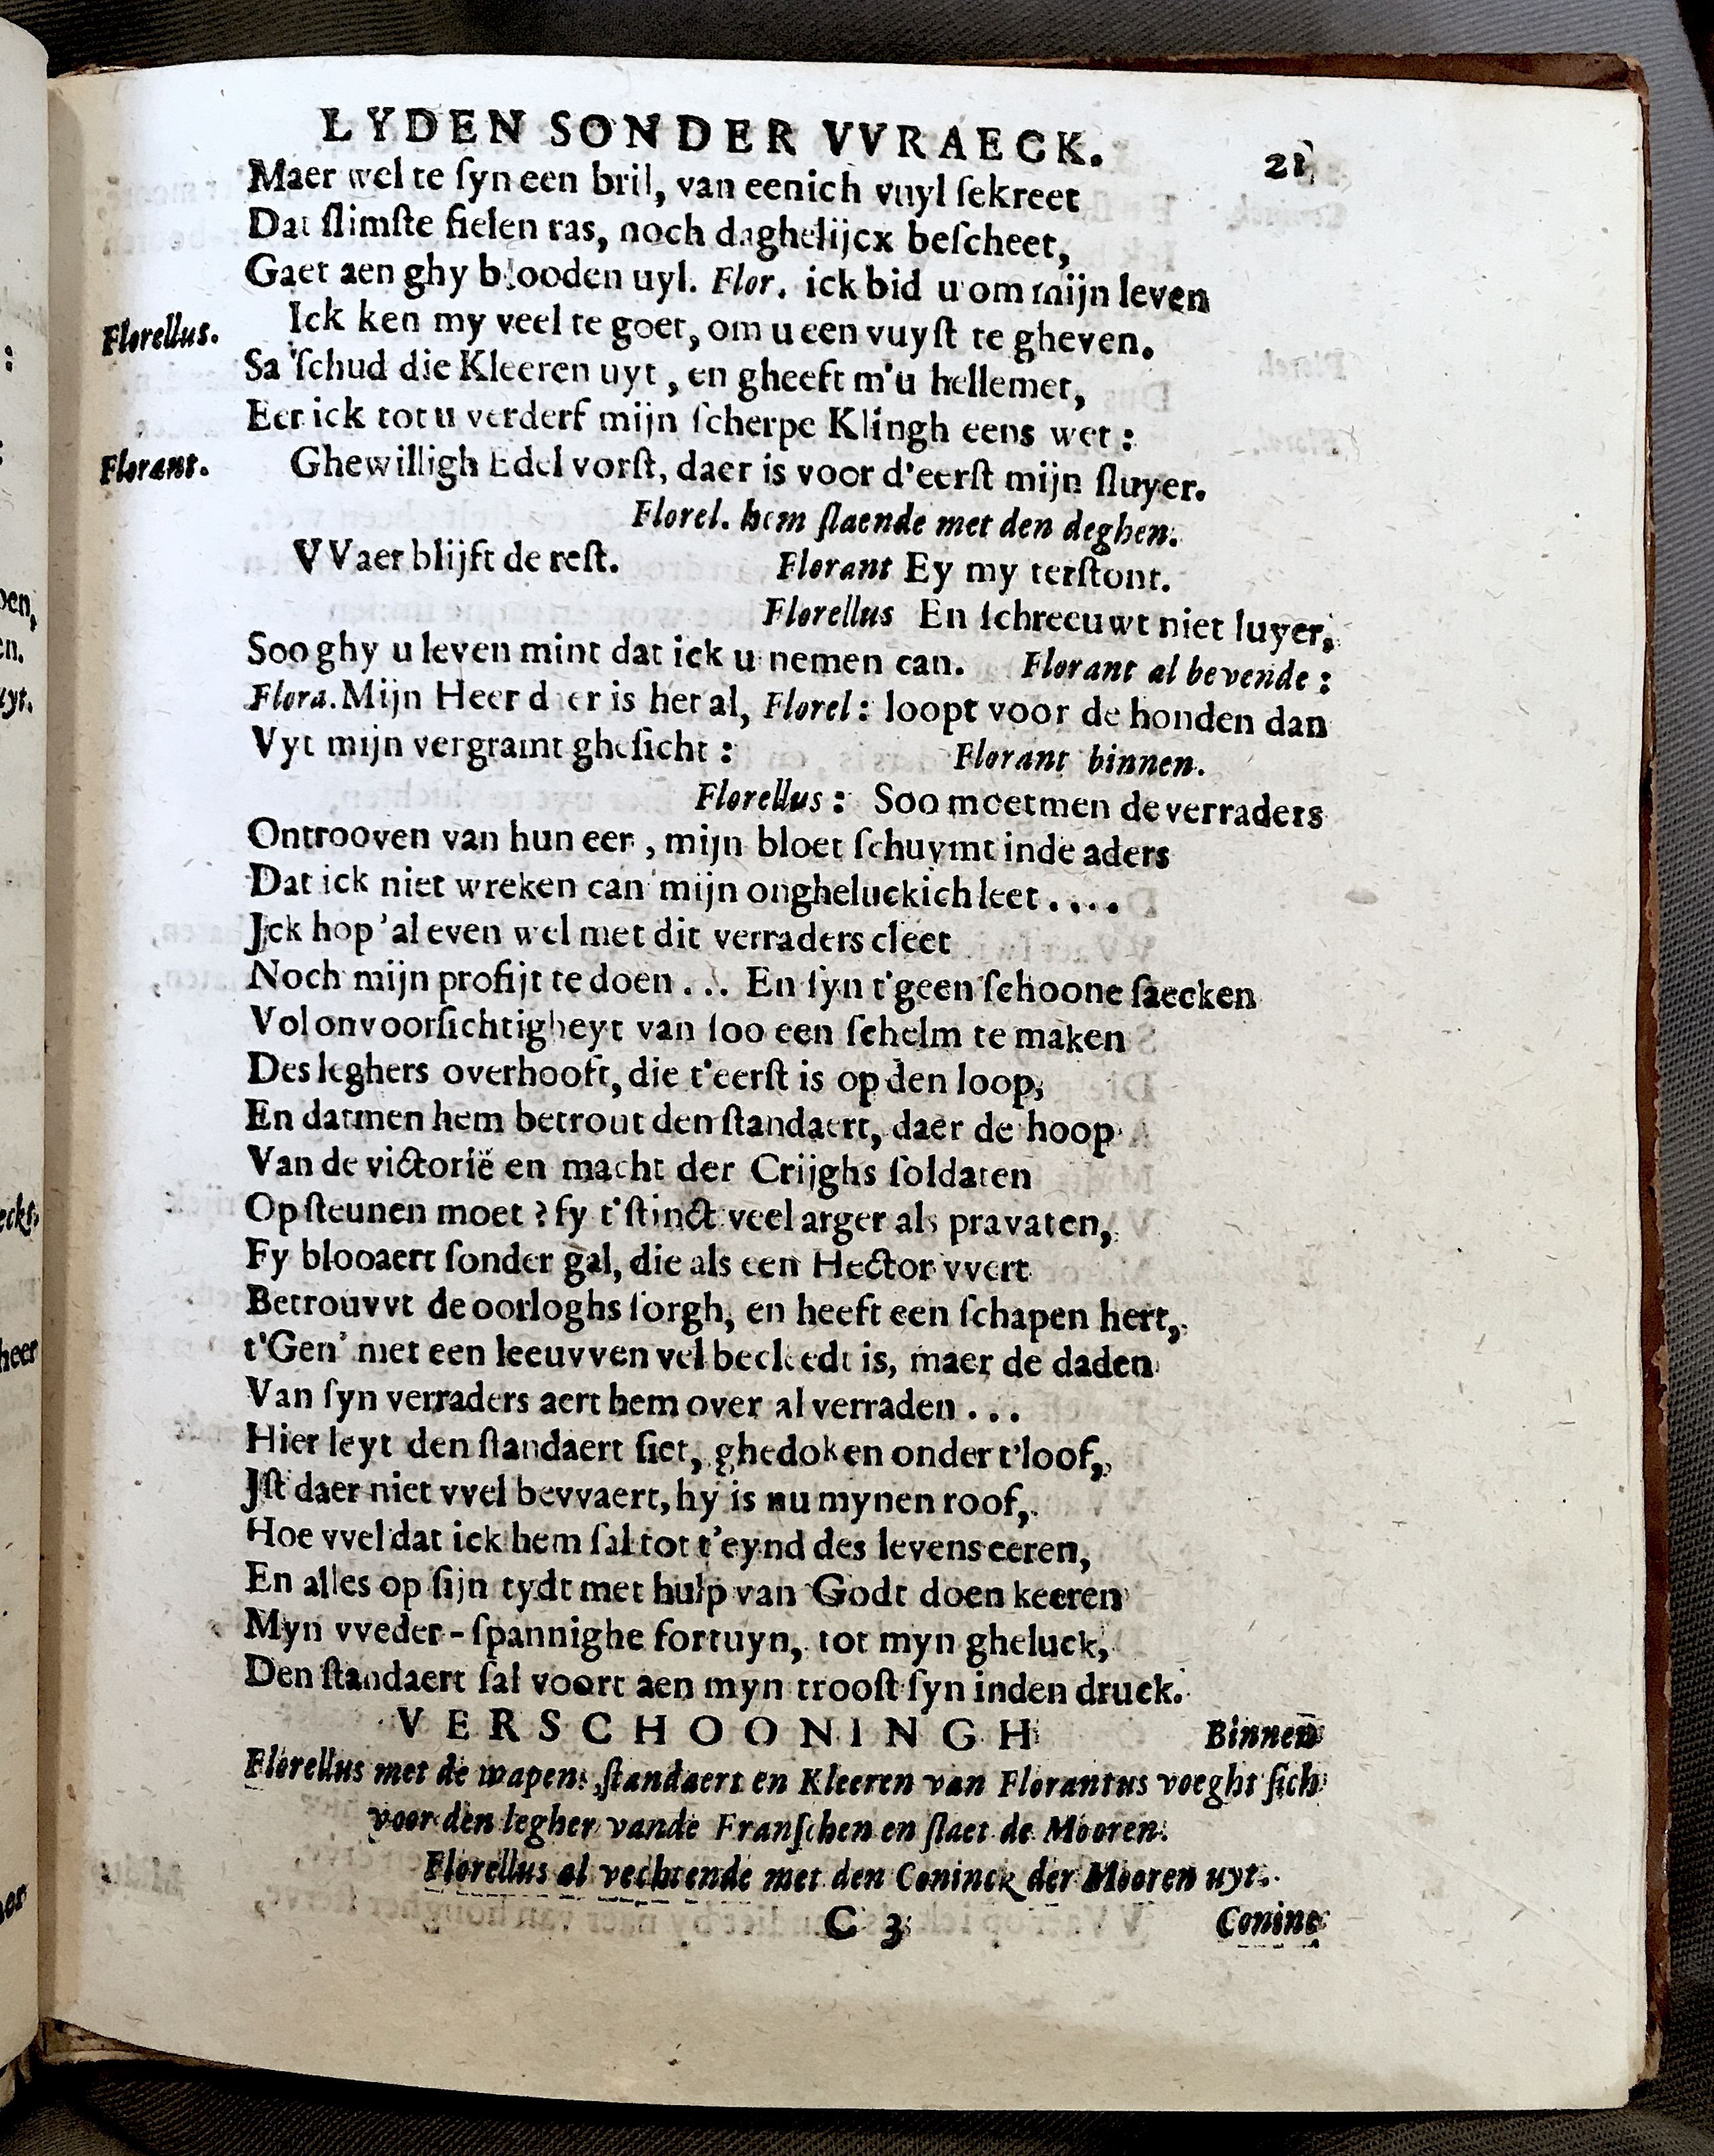 LYDEN SONDER VVRAECK. 21
Maer wel te ſyn een bril, van eenich vuyl ſekreet
Dat ſlimſte fielen ras, noch daghelijcx beſcheet,
Gaet aen ghy blooden uyl. Flor. ick bid u om mijn leven
Florellus. Ick ken my veel te goet, om u een vuyſt te gheven.
Sa 'ſchud die Kleeren uyt, en gheeft m'u hellemet,
Eer ick tot u verderf mijn ſcherpe Klingh eens wet:
Florant. Ghewilligh Edel vorſt, daer is voor d'eerſt mijn ſluyer.
Florel. hem ſlaende met den deghen.
VVaer blijft de reſt. Florant Ey my terſtont.
Florellus En ſchreeuwt niet luyer,
Soo ghy u leven mint dat ick u nemen can. Florant al bevende:
Flora. Mijn Heer d er is het al, Florel: loopt voor de honden dan
Vyt mijn vergramt gheſicht: Florant binnen.
Florellus: Soo moetmen de verraders
Ontrooven van hun eer, mijn bloet ſchuymt inde aders
Dat ick niet wreken can mijn ongheluckich leet....
Jck hop' al even wel met dit verraders cleet
Noch mijn profijt te doen... En ſyn t'geen ſchoone ſaecken
Vol onvoorſichtigheyt van ſoo een ſchelm te maken
Des leghers overhooft, die t'eerſt is op den loop,
En datmen hem betrout den ſtandaert, daer de hoop
Van de victorië en macht der Crijghs ſoldaten
Op ſteunen moet? fy t'ſtinct veel arger als pravaten,
Fy blooaert ſonder gal, die als een Hector vvert
Betrouvvt de oorloghs ſorgh, en heeft een ſchapen hert,
t'Gen' met een leeuvven vel becleedt is, maer de daden
Van ſyn verraders aert hem over al verraden...
Hier leyt den ſtandaert ſiet, ghedoken onder t'loof,
Jſt daer niet vvel bevvaert, hy is nu mynen roof,
Hoe vvel dat ick hem ſal tot t'eynd des levens eeren,
En alles op ſijn tydt met hulp van Godt doen keeren
Myn vveder-ſpannighe fortuyn, tot myn gheluck,
Den ſtandaert ſal voort aen myn trooſt ſyn inden druck.
VERSCHOONINGH Binnen
Florellus met de wapens ſtandaert en Kleeren van Florantus voeght ſich
voor den legher vande Franſchen en ſlaet de Mooren.
Florellus al vechtende met den Coninck der Mooren uyt.
C 3 Coninc